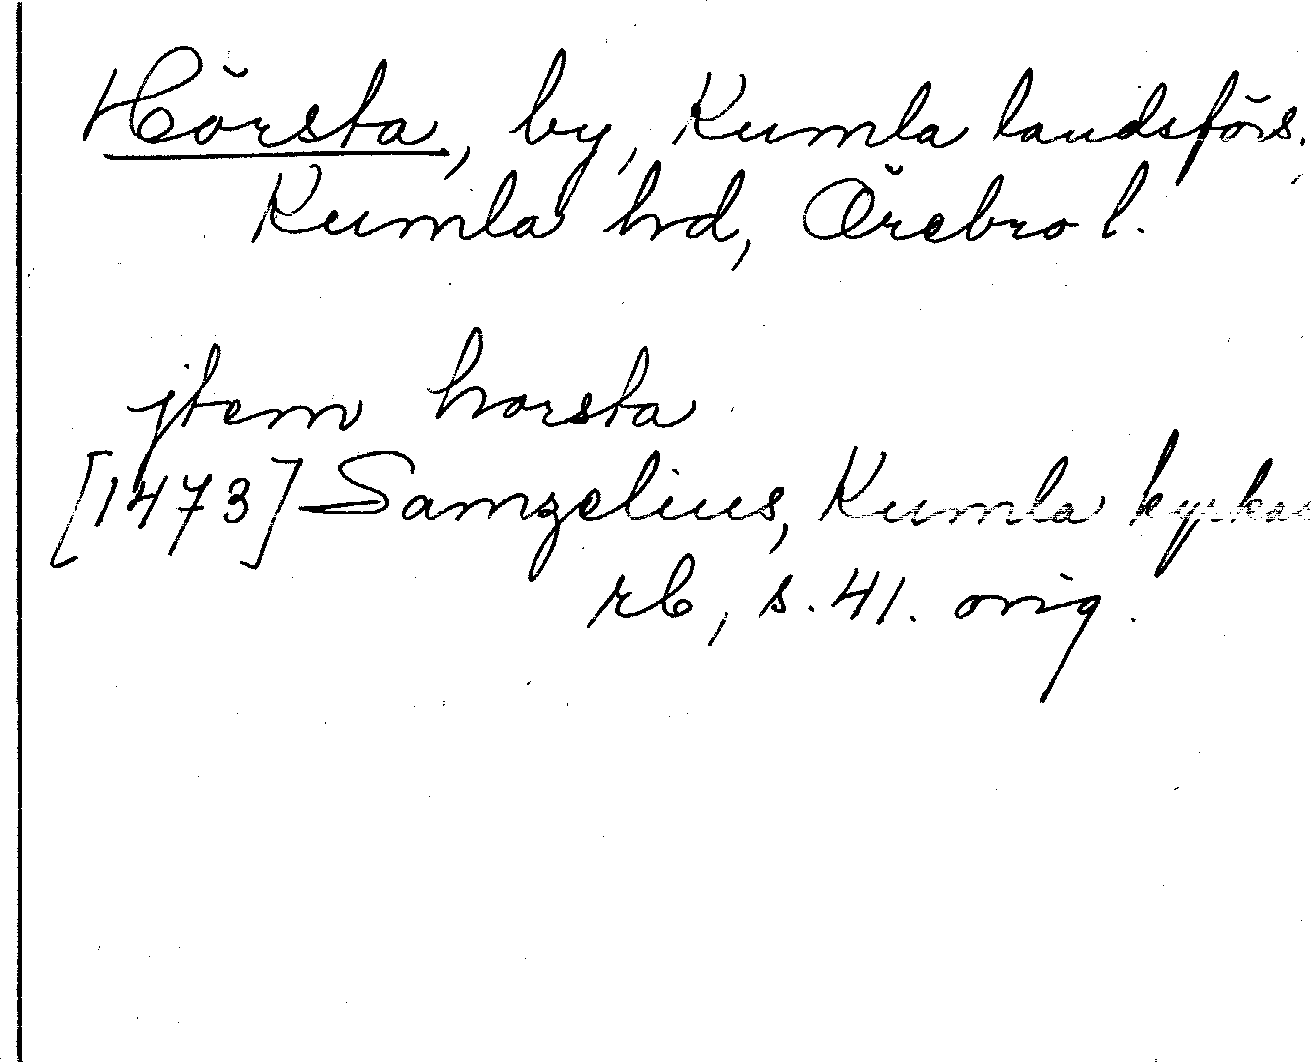 Hörsta, by, Kumla landsförs.,
Kumla hd, Örebro l.
jtem horsta
[1473] Samzelius, Kumla kyrkas
rb, s. 41. orig.